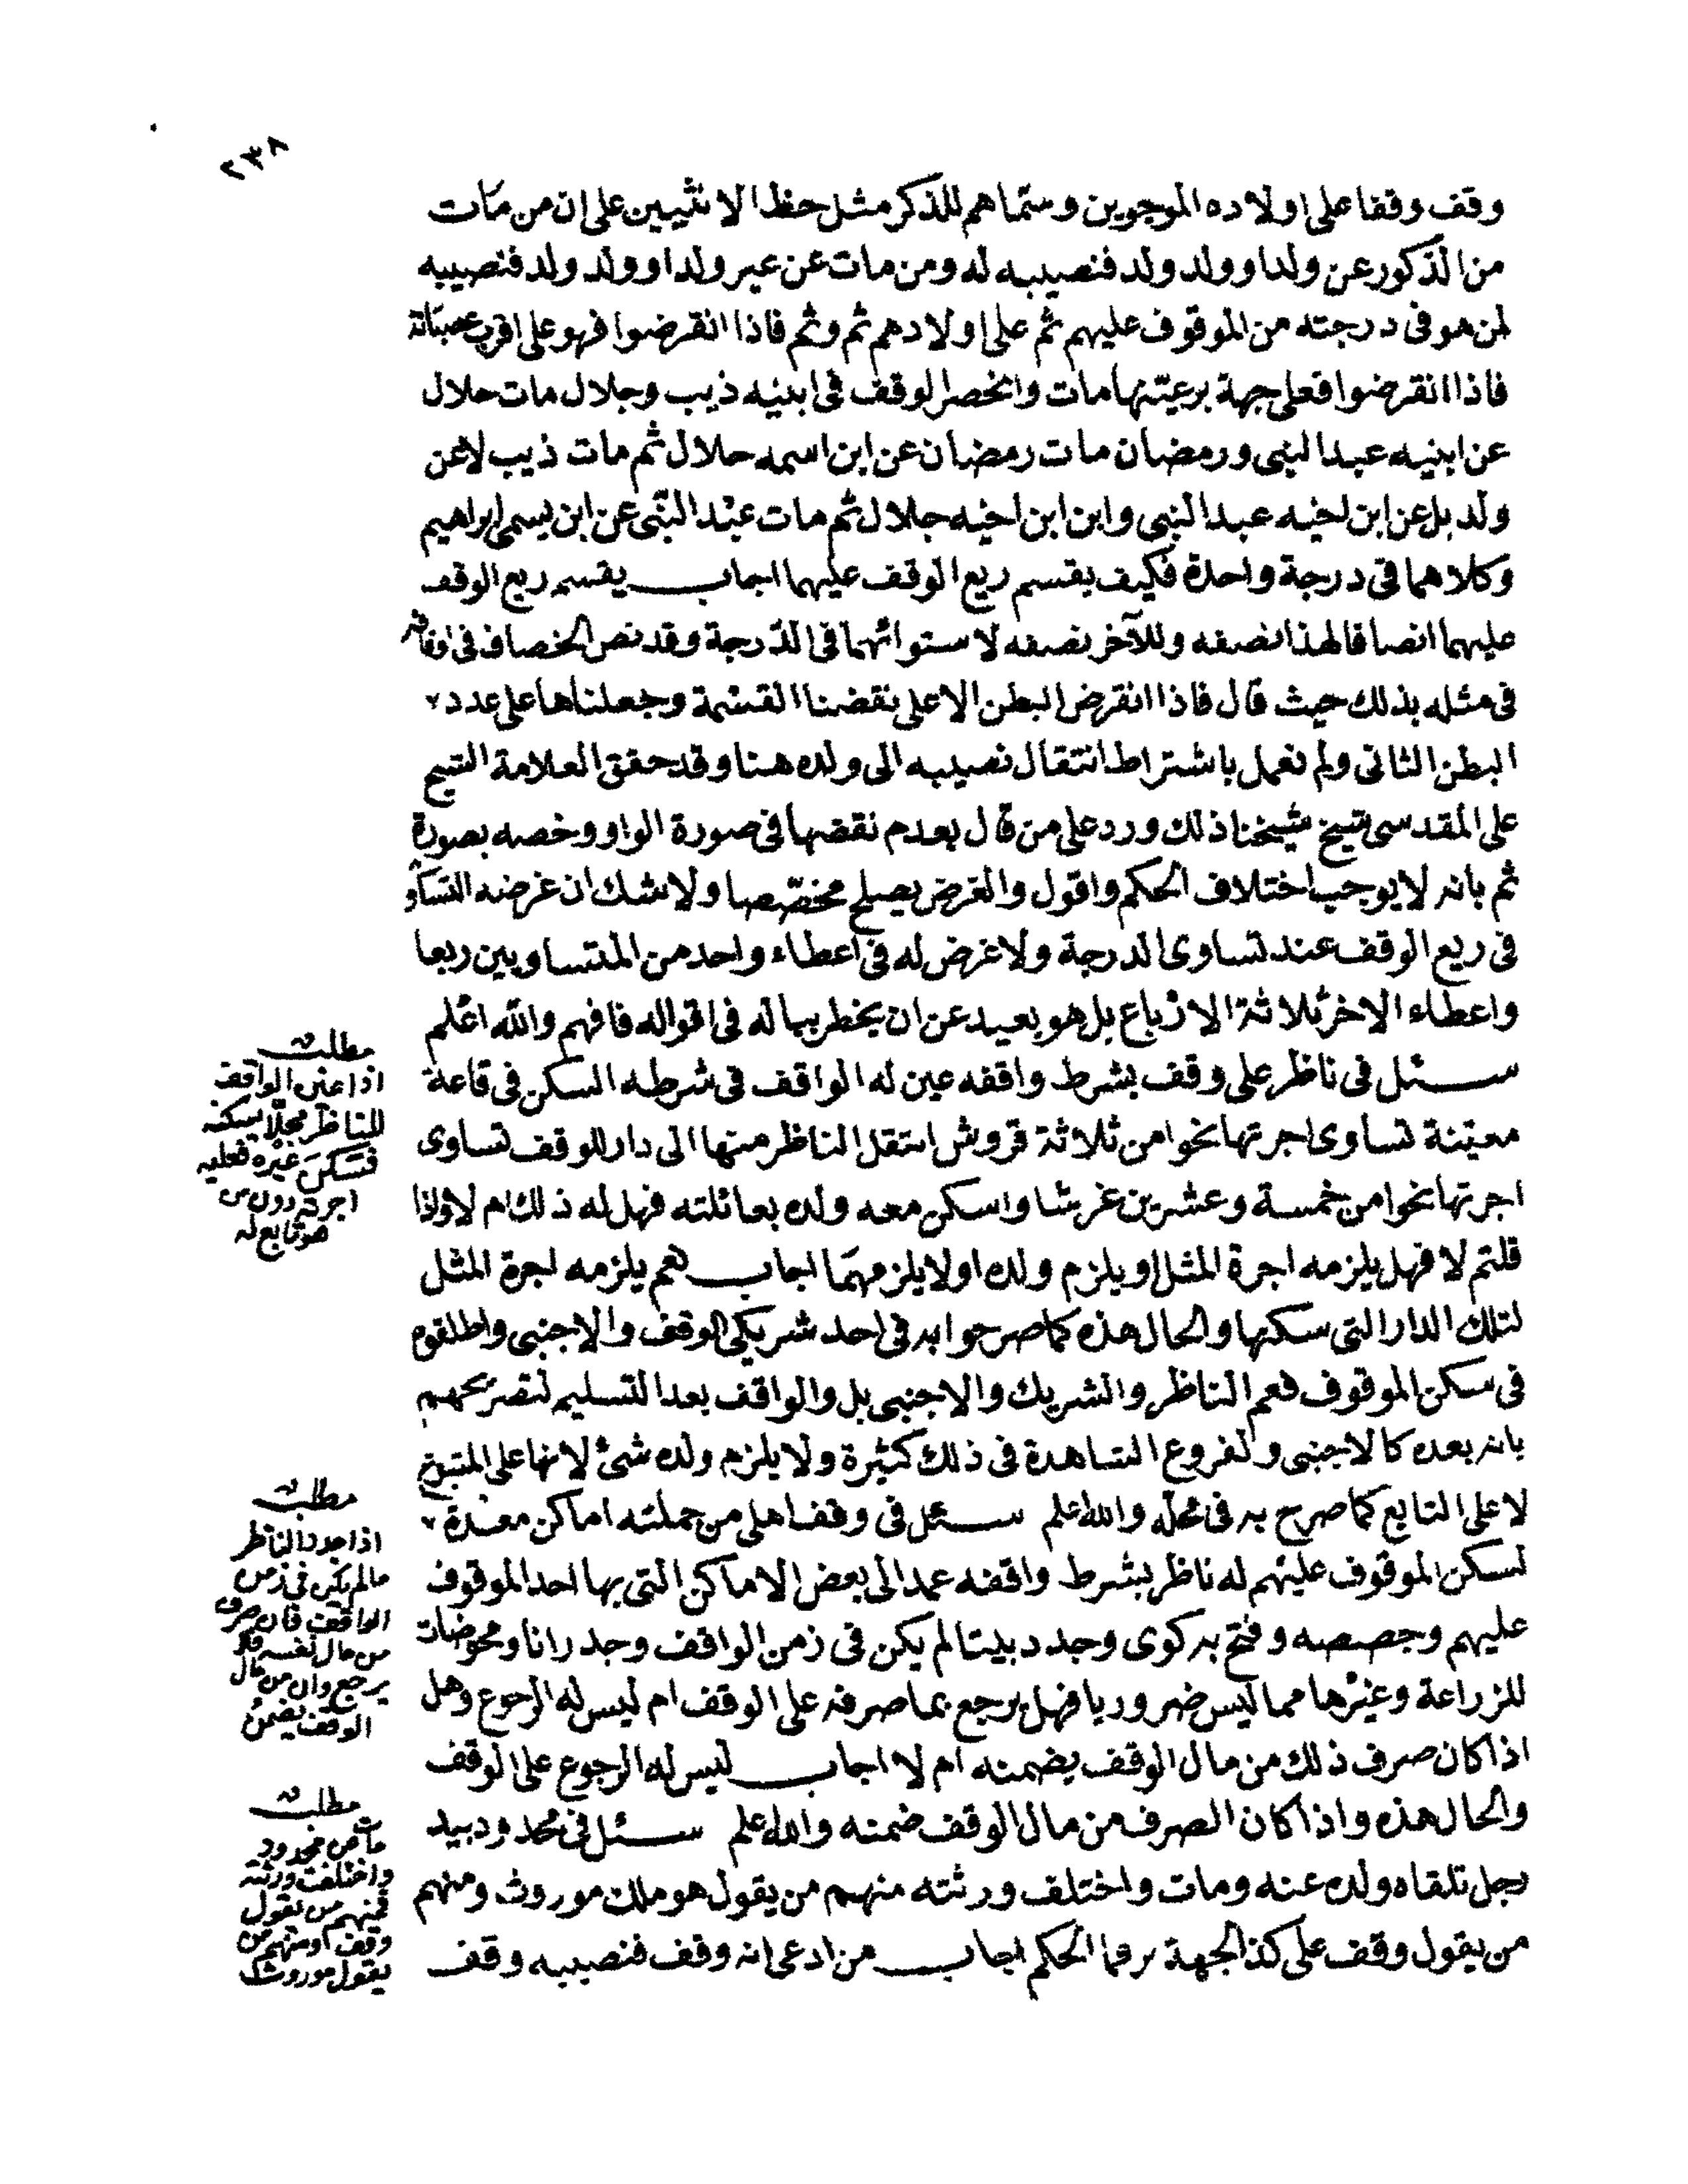 ٢٣٨
وقف وقفا على اولاده الموجوين وسمّاهم للذكر مثل حظ الانثيين على ان من مات
من الذكور عن ولد او ولد ولد فنصيبه له ومن مات عن عير ولد او ولد ولد فنصيبه
لمن هو فى درجته من الموقوف عليهم ثم على اولادهم ثم وثم فاذا انقرضوا فهو على اقرب عصباته
فاذا انقرضوا فعلى جهة برعيّنها مات وانحصر الوقف فى ابنيه ذيب وجلال مات جلال
عن ابنيه عبد النبى ورمضان مات رمضان عن ابن اسمه جلال ثم مات ذيب لا عن
ولد بل عن ابن اخيه عبد النبى وابن ابن اخيه جلال ثم مات عبد النّبى عن ابن يسمى ابراهيم
وكلاهما فى درجة واحدة فكيف يقسم ريع الوقف عليهما اجاب يقسم ريع الوقف
عليهما انصافا لهذا نصفه وللآخر نصفه لاستوائهما فى الدّرجة وقد نص الخصاف فى اوقافه
فى مثله بذلك حيث قال فاذا انقرض البطن الاعلى نقضنا القسمة وجعلناها على عدد
البطن الثانى ولم نعمل باشتراط انتقال نصيبه الى ولده هنا وقد حقق العلامة الشيح
على المقدسى شيخ شيخنا ذلك ورد على من قال بعدم نقضها فى صورة الواو وخصه بصورة
ثم بانه لا يوجب اختلاف الحكم واقول والغرض يصلح مخصّصا ولا شك ان غرضه التساو
فى ريع الوقف عند تساوى الدرجة ولا غرض له فى اعطاء واحد من المتساويين ربعا
واعطاء الاخر ثلاثة الارباع بل هو بعيد عن ان يخطر بباله فى اقواله فافهم والله اعلم
سئل فى ناظر على وقف بشرط واقفه عين له الواقف فى شرطه السكن فى قاعة
معيّنة تساوى اجرتها نحوا من ثلاثة قروش انتقل الناظر منها الى دار للوقف تساوى
اجرتها نحوا من خمسة وعشرين غرشا واسكن معه ولده بعائلته فهل له ذلك ام لا واذا
قلتم لا فهل يلزمه اجرة المثل او يلزم ولده او لا يلزمهما اجاب نعم يلزمه اجرة المثل
لتلك الدار التى سكنها والحال هذه كما صرحوا به فى احد شريكى الوقف والاجنبى واطلقوه
فى سكن الموقوف فعم الناظر والشريك والاجنبى بل والواقف بعد التسليم لتصريحهم
بانه بعده كالاجنبى والفروع الشاهدة فى ذلك كثيرة ولا يلزم ولده شئ لانها على المتبوع
لا على التابع كما صرح به فى محله والله اعلم سئل فى وقف اهلى من جملته اماكن معدة
لسكن الموقوف عليهم له ناظر بشرط واقفه عمد الى بعض الاماكن التى بها احد الموقوف
عليهم وجصصه وفتح به كوى وجدد بيتا لم يكن فى زمن الواقف وجدرانا ومحوضات
للزراعة وغيرها مما ليس ضروريا فهل يرجع بما صرفه على الوقف ام ليس له الرجوع وهل
اذا كان صرف ذلك من مال الوقف يضمنه ام لا اجاب ليس له الرجوع على الوقف
والحال هذه واذا كان الصرف من مال الوقف ضمنه والله اعلم سئل فى محدود بيد
رجل تلقاه ولده عنه ومات واختلف ورثته منهم من يقول هو ملك موروث ومنهم
من يقول وقف على كذا لجهة بر فما الحكم اجاب من ادعى انه وقف فنصيبه وقف
مطلب
اذا عين الواقف
للناظر محلّا يسكنه
فسكن غيره فعليه
اجرته دون من
هو تابع له
مطلب
اذا جدد الناظر
مالم يكن فى زمن
الواقف فان صرف
من مال نفسه فلا
يرجع وان من مال
الوقف يضمن
مطلب
مات عن محدود
واختلفت ورثته
فمنهم من يقول
وقف ومنهم من
يقول موروث